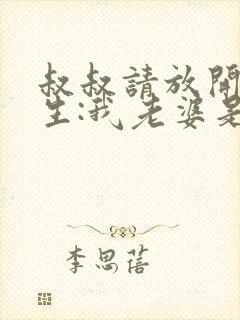 叔叔請放開
生:我老婆是
李思蓓